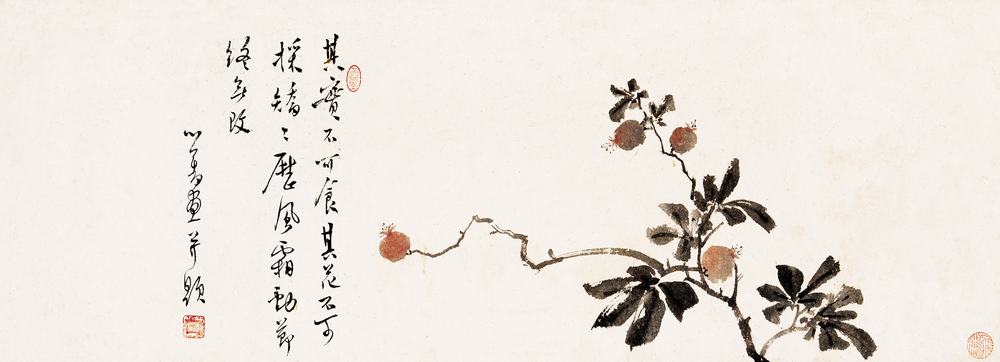 其實不可食其花不可
採矯〻歷風霜勁節
終無改
心畬畫并題